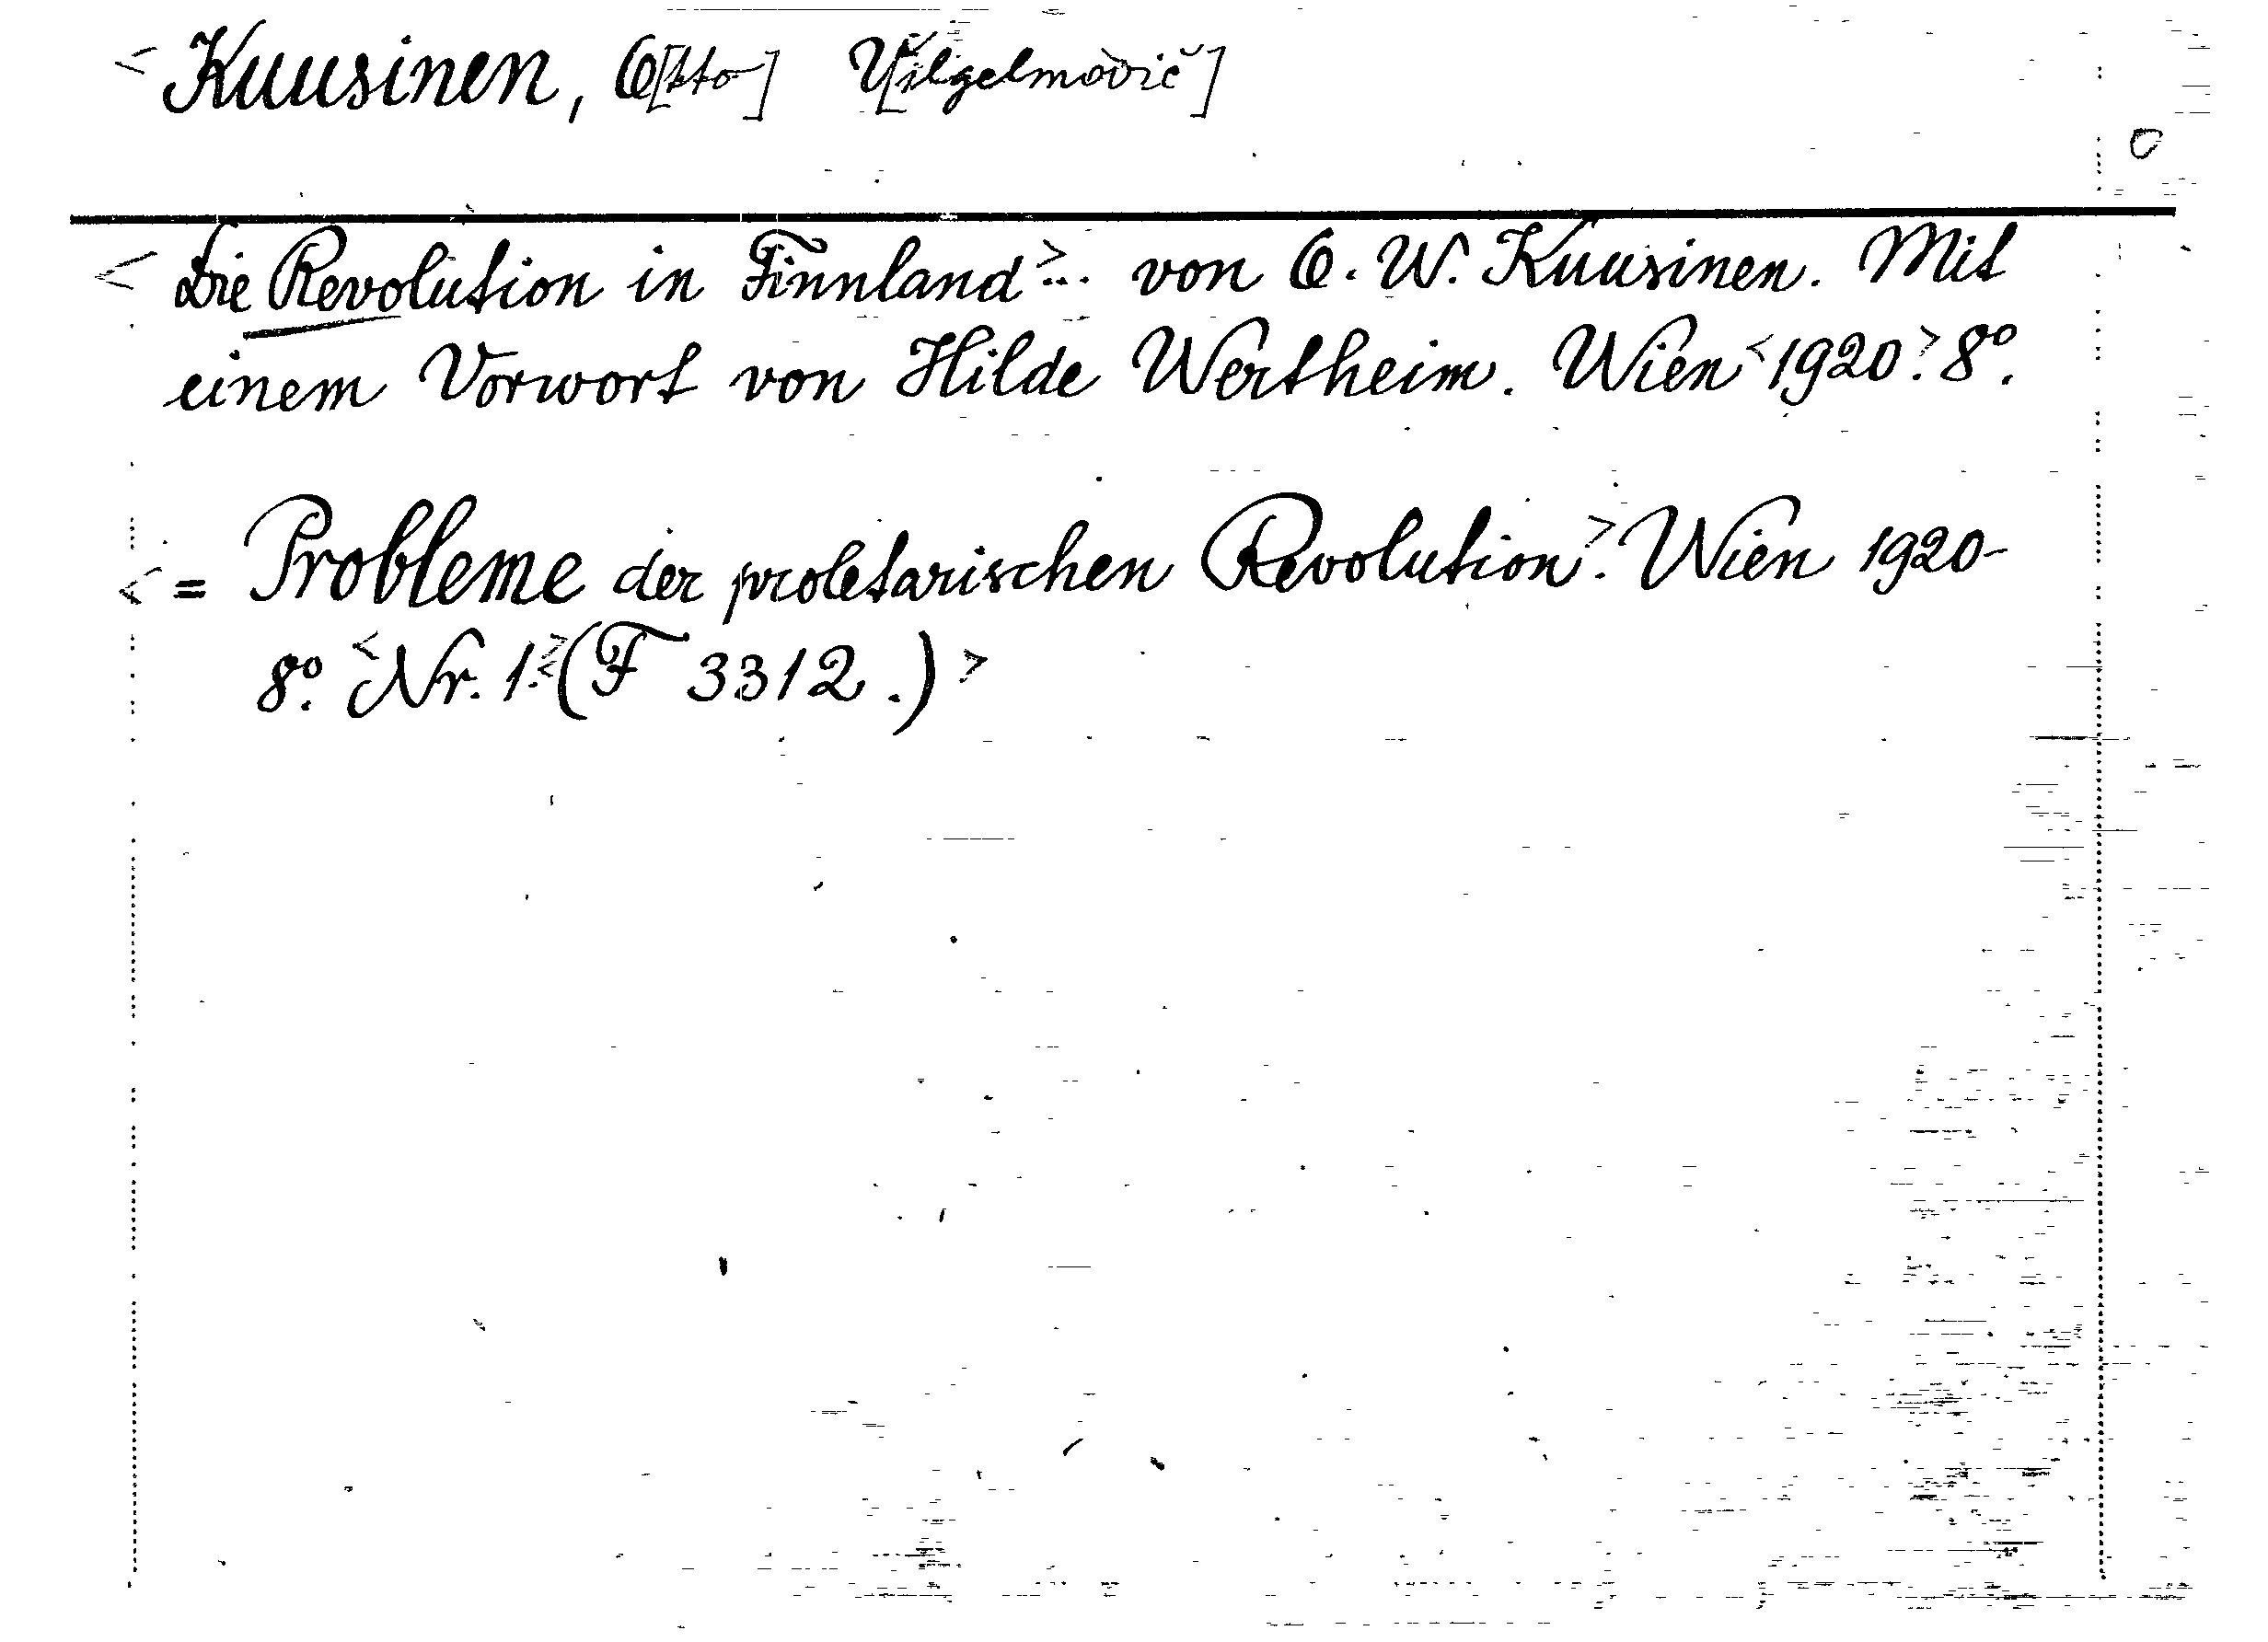 < Kuusinen, O[tto] V[il'gelmovič]
< Die Revolution in Finnland >... von O. W. Kuusinen. Mit
einem Vorwort von Hilde Wertheim. Wien < 1920 >. 8º.
< = Probleme der proletarischen Revolution >. Wien 1920-
8º. < Nr. 1. > < (F 3312.) >